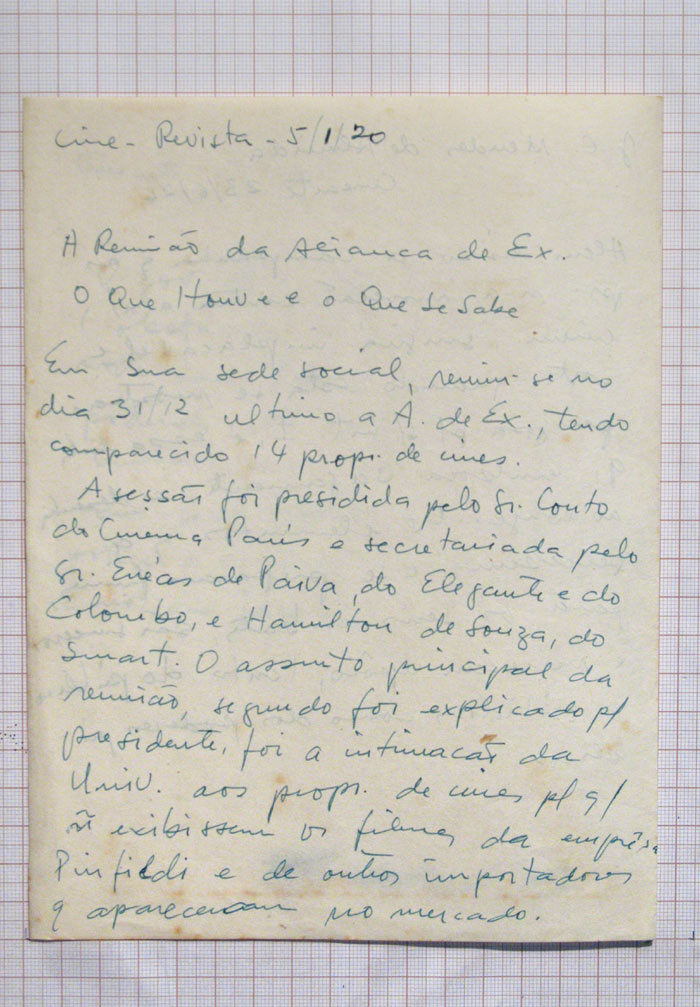 Cine - Revista - 5/1/20
A Reunião da Alianca de Ex.
O Que Houve e o Que se Sabe
Em Sua sede social, reuniu-se no
dia 31/12 ultimo a A. de Ex., tendo
comparecido 14 propr. de cines.
A sessão foi presidida pelo Sr. Couto
do Cinema Paris e secretariada pelo
Sr. Enéas de Paiva, do Elegante e do
Colombo, e Hamilton de Souza, do
Smart. O assunto principal da
reunião, segundo foi explicado p/
presidente, foi a intimacão da
Univ. aos propr. de cines p/ q/
ñ exibissem os filmes da emprêsa
Pinfildi e de outros importadores
q apareceram no mercado.